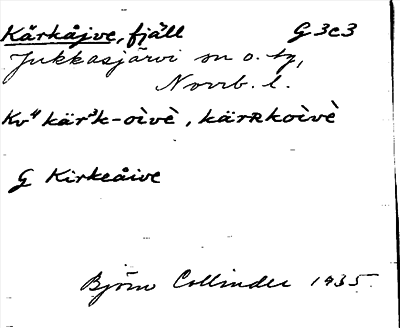 Kärkåjve, fjäll G3c3
Jukkasjärvi sn o. tg,
Norrb. l.
Kv⁴ kär³k-oìvè, käRRkoìvè
G Kirkeåive
Björn Collinder 1935